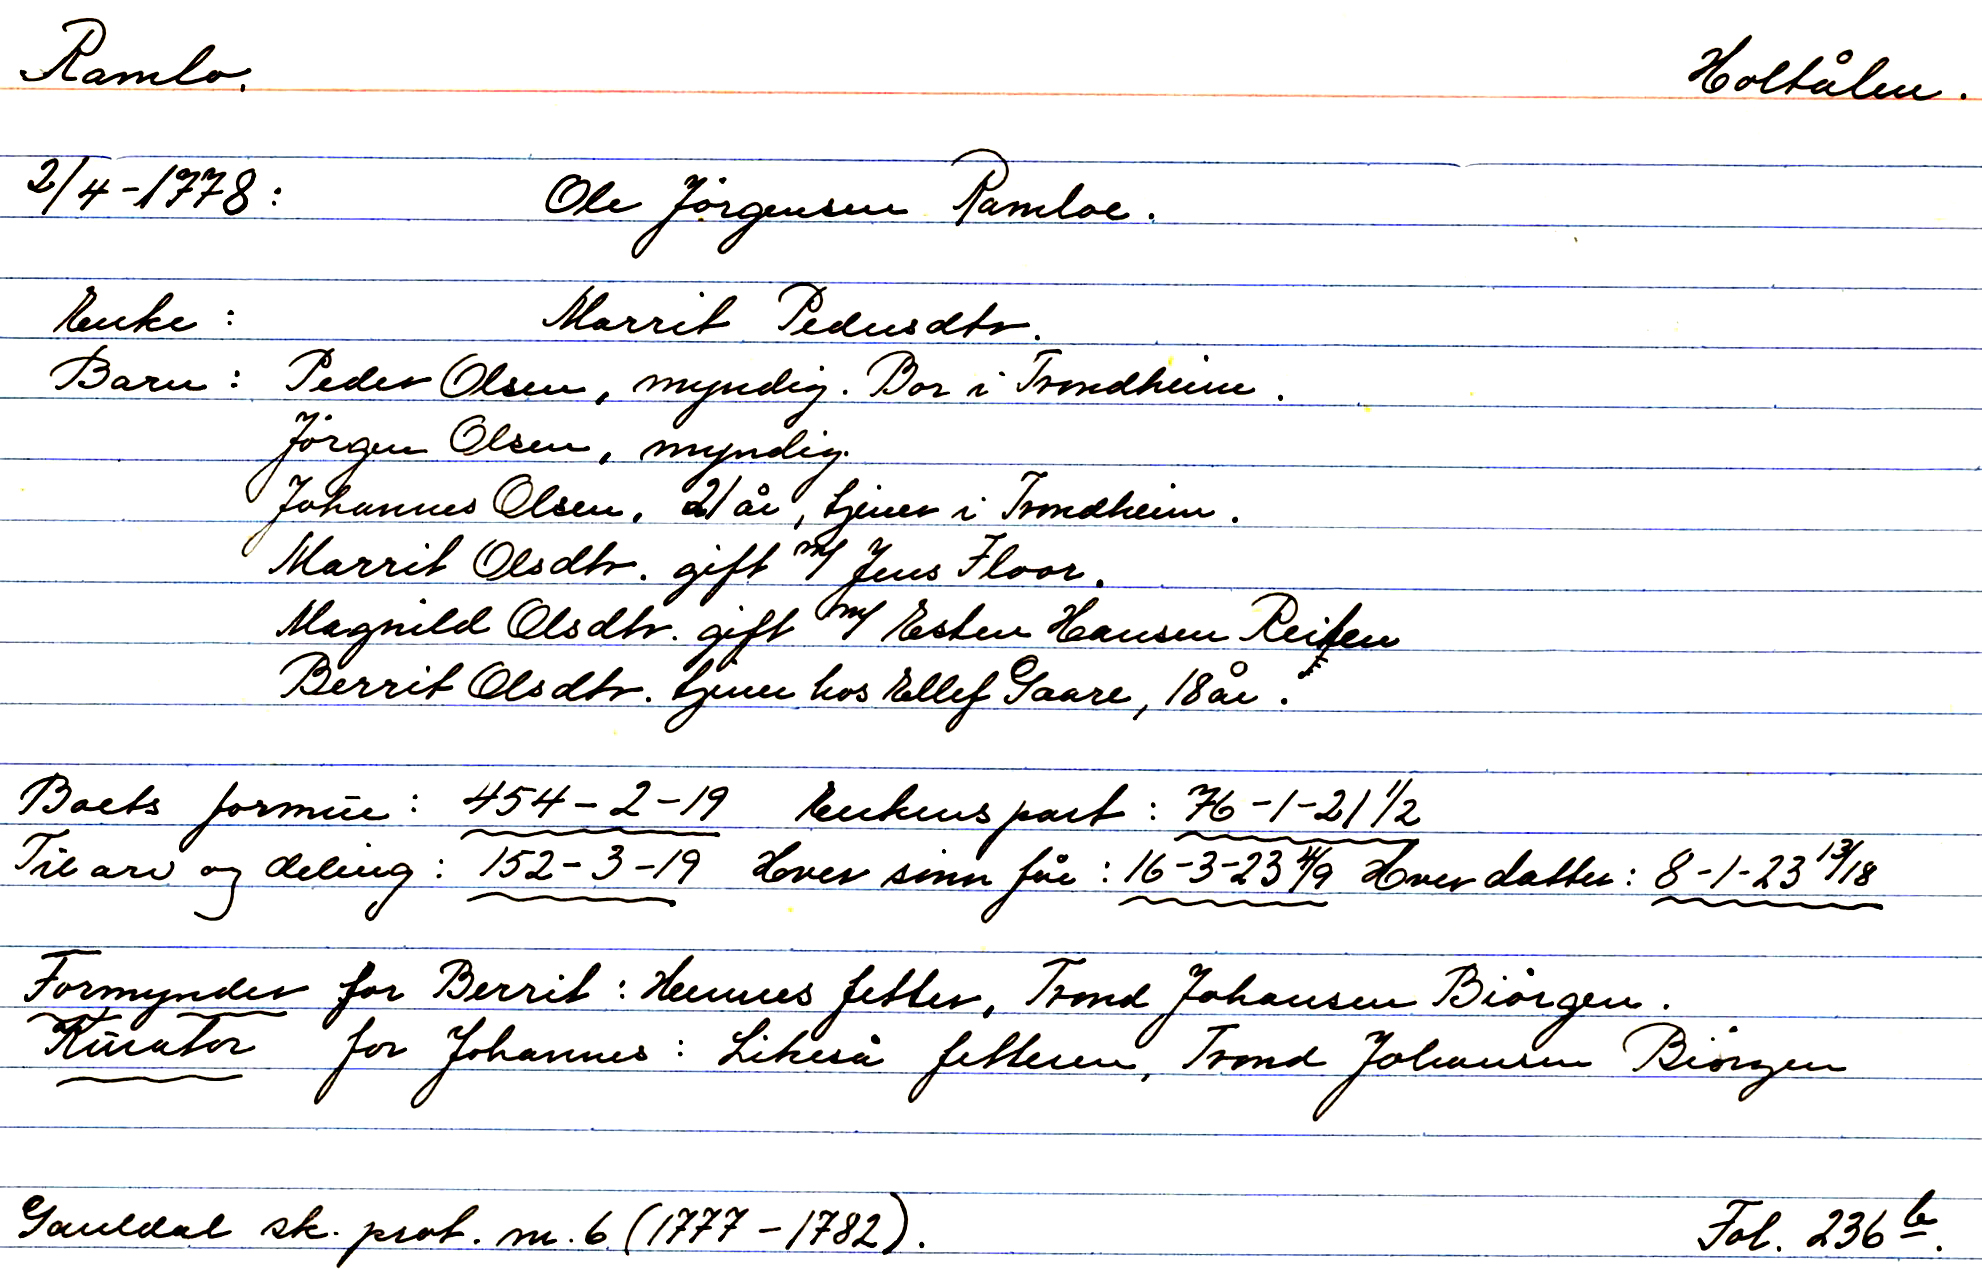 Ramlo. Holtålen.
2/4-1778: Ole Jörgensen Ramloe.
Enke: Marrit Pedersdtr.
Barn: Peder Olsen, myndig. Bor i Trondheim.
Jörgen Olsen, myndig.
Johannes Olsen, 21 år, tjener i Trondheim.
Marrit Olsdtr. gift m/ Jens Floor.
Magnild Olsdtr. gift m/ Esten Hansen Reiten
Berrit Olsdtr. tjener hos Ellef Gaare, 18 år.
Boets formue: 454-2-19 Enkens part: 76-1-21 1/2
Til arv og deling: 152-3-19 Hver sönn får: 16-3-23 4/9 Hver datter: 8-1-23 13/18
Formynder for Berrit: Hennes fetter, Trond Johansen Biörgen.
Kurator for Johannes: Likeså fetteren, Trond Johansen Biörgen
Gauldal sk. prot. nr. 6 (1777-1782). Fol. 236 b.